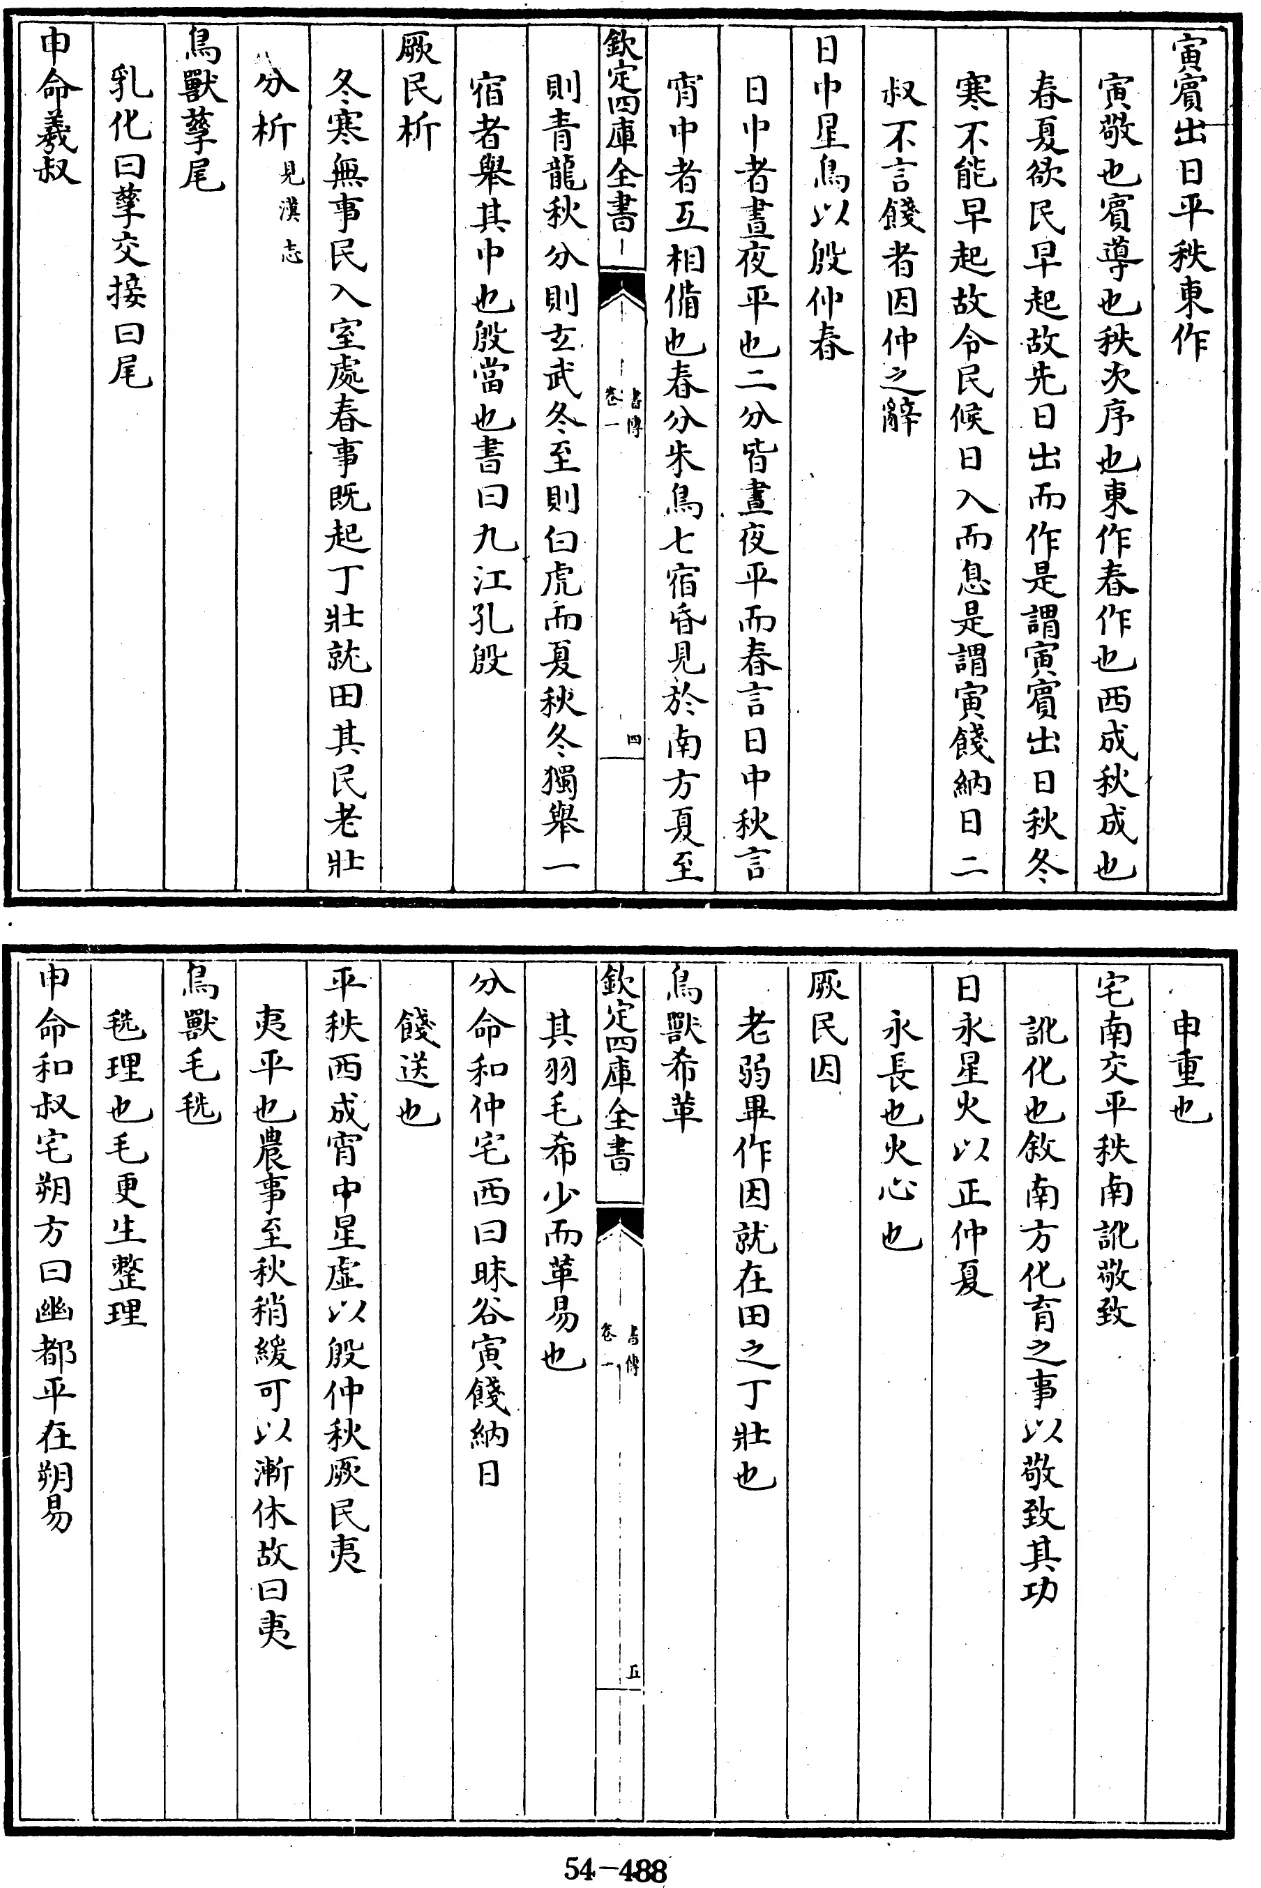 寅賓出日平秩東作
寅敬也賓導也秩次序也東作春作也西成秋成也
春夏欲民早起故先日出而作是謂寅賓出日秋冬
寒不能早起故令民候日入而息是謂寅餞納日二
叔不言餞者因仲之辭
日中星鳥以殷仲春
日中者晝夜平也二分皆晝夜平而春言日中秋言
宵中者互相備也春分朱鳥七宿昏見於南方夏至
欽定四庫全書
書傳
卷一
四
則青龍秋分則玄武冬至則白虎而夏秋冬獨舉一
宿者舉其中也殷當也書曰九江孔殷
厥民析
冬寒無事民入室處春事既起丁壯就田其民老壯
分析見漢志
鳥獸孳尾
乳化曰孳交接曰尾
申命羲叔
申重也
宅南交平秩南訛敬致
訛化也敘南方化育之事以敬致其功
日永星火以正仲夏
永長也火心也
厥民因
老弱畢作因就在田之丁壯也
鳥獸希革
欽定四庫全書
書傳
卷一
五
其羽毛希少而革易也
分命和仲宅西曰昧谷寅餞納日
餞送也
平秩西成宵中星虛以殷仲秋厥民夷
夷平也農事至秋稍緩可以漸休故曰夷
鳥獸毛毨
毨理也毛更生整理
申命和叔宅朔方曰幽都平在朔易
54-488